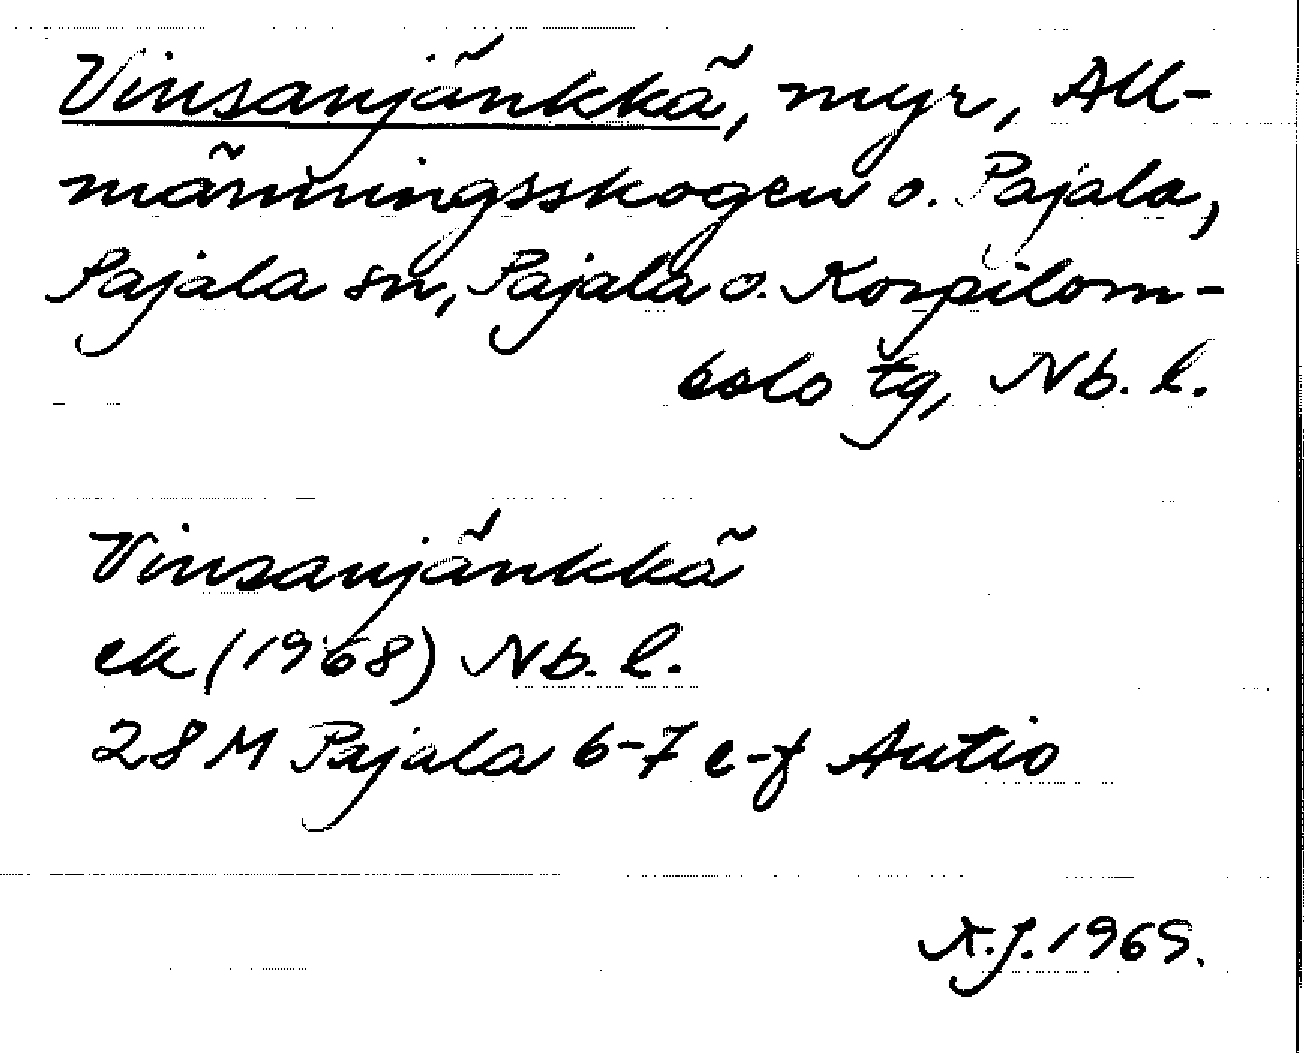 Vinsanjänkkä, myr, All-
männingsskogen o. Pajala,
Pajala sn, Pajala o. Korpilom-
bolo tg, Nb. l.
Vinsanjänkkä
ek (1968) Nb. l.
28 M Pajala 6-7 e-f Autio
X.J. 1969.